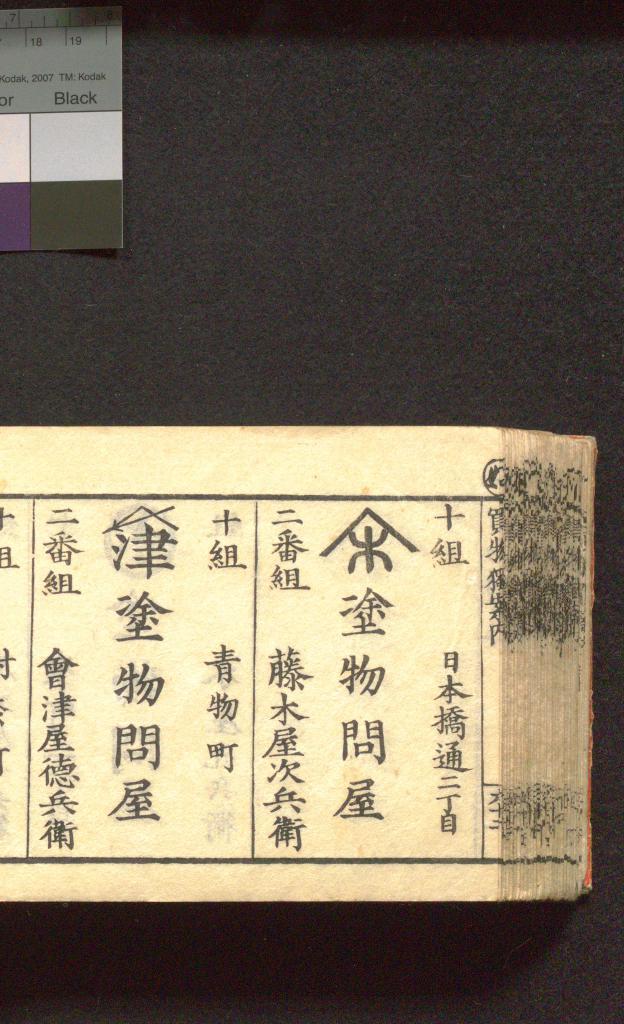 7 8
18 19
Kodak, 2007 TM: Kodak
or Black
十組
日本橋通二丁目
木
塗物問屋
二番組
藤木屋次兵衛
十組
青物町
津
塗物問屋
二番組
會津屋德兵衛